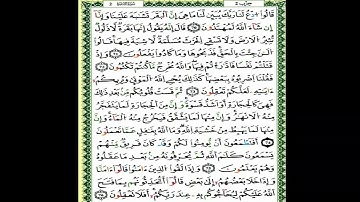 قَالُوا ادْعُ لَنَا رَبَّكَ يُبَيِّن لَّنَا مَا هِيَ إِنَّ الْبَقَرَ تَشَٰبَهَ عَلَيْنَا وَإِنَّا
إِن شَاءَ اللَّهُ لَمُهْتَدُونَ قَالَ إِنَّهُ يَقُولُ إِنَّهَا بَقَرَةٌ لَّا ذَلُولٌ
تُثِيرُ الْأَرْضَ وَلَا تَسْقِي الْحَرْثَ مُسَلَّمَةٌ لَّا شِيَةَ فِيهَا قَالُوا
الْـَٰٔنَ جِئْتَ بِالْحَقِّ فَذَبَحُوهَا وَمَا كَادُوا يَفْعَلُونَ
وَإِذْ قَتَلْتُمْ نَفْسًا فَادَّٰرَٰٔتُمْ فِيهَا وَاللَّهُ مُخْرِجٌ مَّا كُنتُمْ تَكْتُمُونَ
فَقُلْنَا اضْرِبُوهُ بِبَعْضِهَا كَذَٰلِكَ يُحْيِ اللَّهُ الْمَوْتَىٰ وَيُرِيكُمْ
ءَايَٰتِهِ لَعَلَّكُمْ تَعْقِلُونَ ثُمَّ قَسَتْ قُلُوبُكُم مِّن بَعْدِ ذَٰلِكَ
فَهِيَ كَالْحِجَارَةِ أَوْ أَشَدُّ قَسْوَةً وَإِنَّ مِنَ الْحِجَارَةِ لَمَا يَتَفَجَّرُ
مِنْهُ الْأَنْهَٰرُ وَإِنَّ مِنْهَا لَمَا يَشَّقَّقُ فَيَخْرُجُ مِنْهُ الْمَاءُ وَإِنَّ
مِنْهَا لَمَا يَهْبِطُ مِنْ خَشْيَةِ اللَّهِ وَمَا اللَّهُ بِغَٰفِلٍ عَمَّا تَعْمَلُونَ
أَفَتَطْمَعُونَ أَن يُؤْمِنُوا لَكُمْ وَقَدْ كَانَ فَرِيقٌ مِّنْهُمْ
يَسْمَعُونَ كَلَٰمَ اللَّهِ ثُمَّ يُحَرِّفُونَهُ مِن بَعْدِ مَا عَقَلُوهُ
وَهُمْ يَعْلَمُونَ وَإِذَا لَقُوا الَّذِينَ ءَامَنُوا قَالُوا ءَامَنَّا
وَإِذَا خَلَا بَعْضُهُمْ إِلَىٰ بَعْضٍ قَالُوا أَتُحَدِّثُونَهُم بِمَا فَتَحَ
اللَّهُ عَلَيْكُمْ لِيُحَاجُّوكُم بِهِ عِندَ رَبِّكُمْ أَفَلَا تَعْقِلُونَ